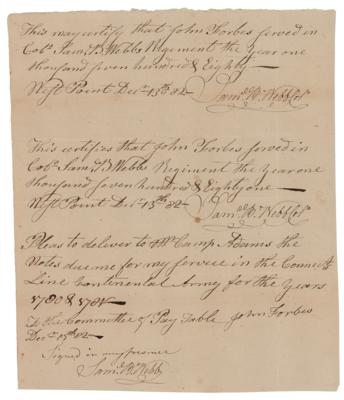 This may certify that John Forbes served in
Colo. Saml. B Webbs Regiment the year one
thousand seven hundred & Eighty —
West Point Decr. 15th 82 —
Saml. B. Webb Colo.
This certifies that John Forbes served in
Colo. Saml. B Webbs Regiment the year one
thousand seven hundred & Eighty one —
West Point Decr. 15th 82 —
Saml. B. Webb Colo.
Pleas to deliver to Mr Camp Adams the
Notes due me for my service in the Connectt.
Line Continental Army for the Years
1780 & 1781 —
To the Committee of Pay Table John Forbes
Decr. 15th 82 —
Signed in my presence
Saml. B. Webb